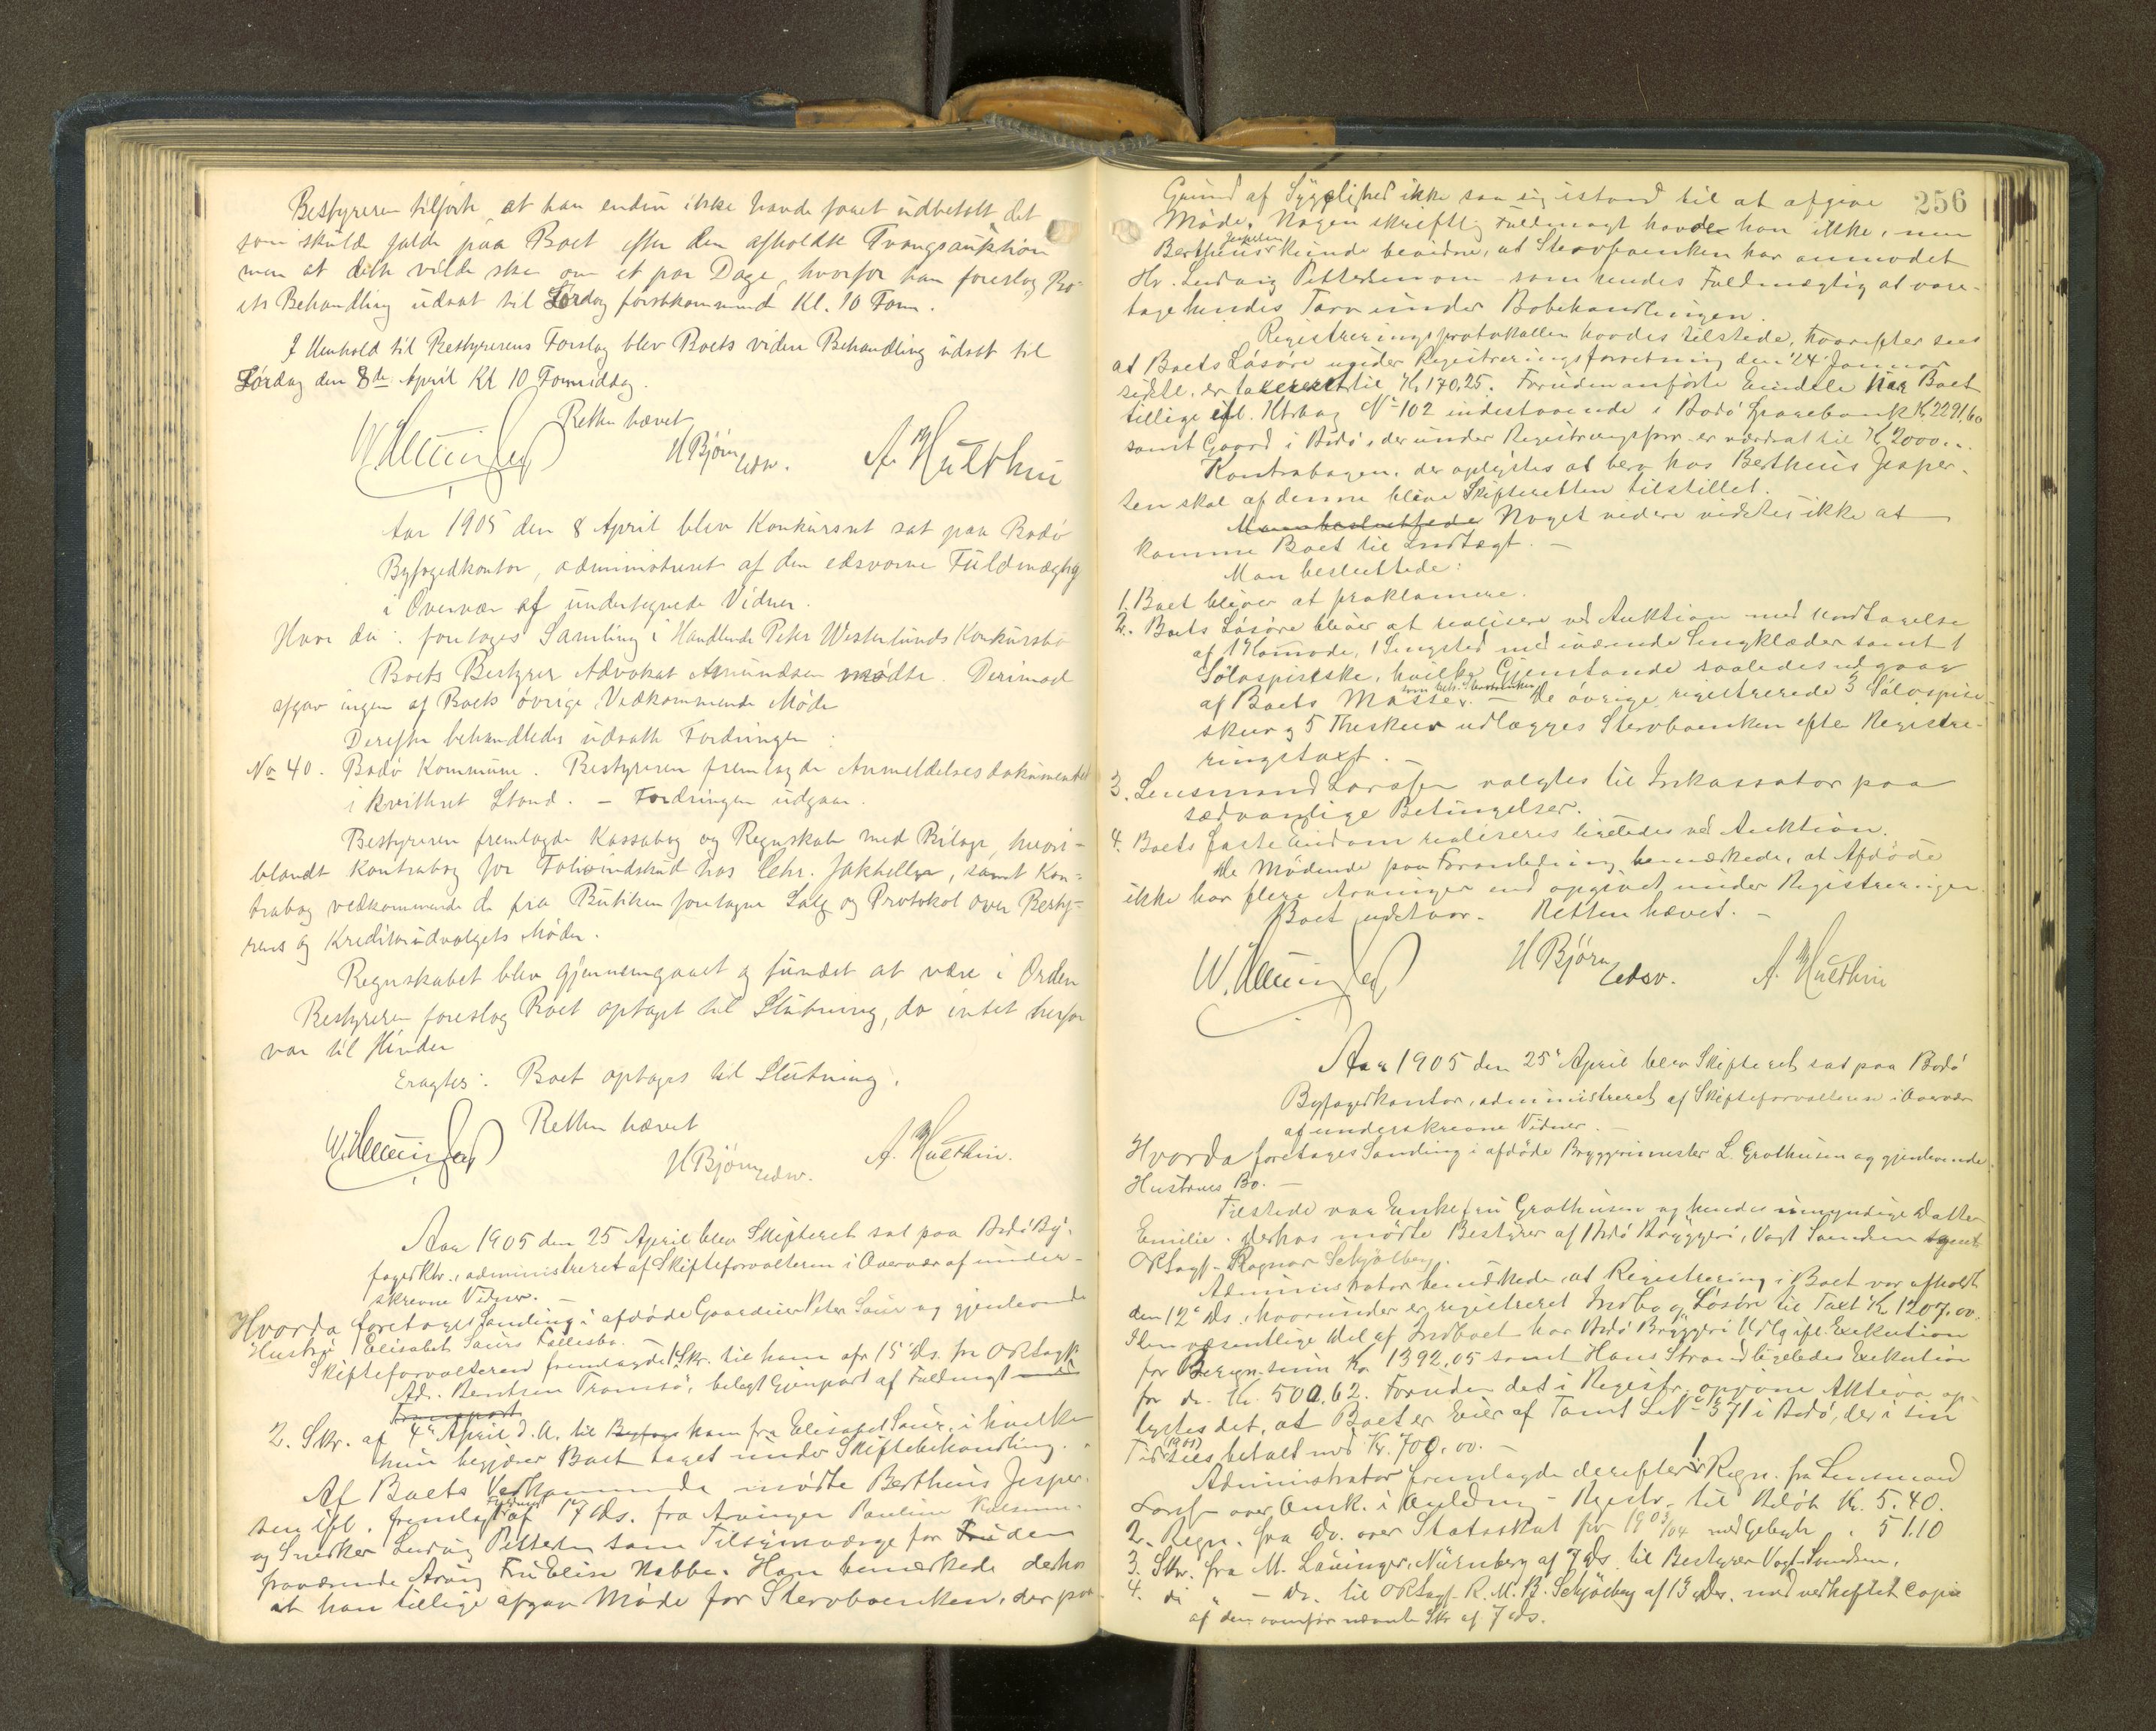 Bestyreren tilførte at han endnu ikke havde faaet udbetalt det
som skulde falde paa Boet efter den afholdte Tvangsauktion
men at dette vilde ske om et par Dage, hvorfor han foreslog Bo-
ets Behandling udsat til Lørdag førstkommende Kl. 10 Form.
I Henhold til Bestyrerens Forslag blev Boets videre Behandling udsat til
Lørdag den 8de April Kl 10 Formiddag.
Retten hævet
H Bjørn edsv. A. Hulthin
Aar 1905 den 8 April blev Konkursret sat paa Bodø
Byfogedkontor, administreret af den edsvorne Fuldmægtig
i Overvær af undertegnede Vidner.
Hvor da: foretages Samling i Handlende Peter Westerlunds Konkursbo
Boets Bestyrer Advokat Amundsen mødte. Derimod
afgav ingen af Boets øvrige Vedkommende Møde
Derefter behandledes udsatte Fordringer:
No 40. Bodø Kommune. Bestyreren fremlagde Anmeldelsesdokumentet
i kvitteret Stand. – Fordringen udgaar.
Bestyreren fremlagde Kassabog og Regnskab med Bilage, hvori-
blandt Kontrabog for Folioindskud hos Chr. Jakhelln, samt Kon-
trabog vedkommende de fra Butiken foretagne Salg og Protokol over Besty-
rens og Kreditorudvalgets Møder.
Regnskabet blev gjennemgaaet og fundet at være i Orden
Bestyreren foreslog Boet optaget til Slutning, da intet herfor
var til Hinder
Eragtes: Boet optages til Slutning.
Retten hævet
H Bjørn edsv. A. Hulthin.
Aar 1905 den 25 April blev Skifteret sat paa Bodø By-
fogedktr., administreret af Skifteforvalteren i Overvær af under-
skrevne Vidner. –
Hvorda foretoges Samling i afdøde Gaardeier Peter Saurs og gjenlevende
Hustru Elisabet Saurs Fællesbo.
Skifteforvalteren fremlagde 1 Skr. til ham afr 15 ds. fra ORSagf.
Ad. Bentsen Tromsø, belagt Gjenpart af Fuldmagt
Transport
2. Skr. af 4de April d. A. til Byfoge ham fra Elisabet Saur, i hvilke
hun begjærer Boet taget under Skiftebehandling.
Af Boets Vedkommende mødte Bertheus Jesper-
sen ifl. fremlagt Fuldmagt af 17 ds. fra Arvinger Pauline
og Snedker Ludvig Pettersen som Tilsynsværge for Fruden
fraværende Arving Fru Elise Nabbe. Han bemærkede derhos
at han tillige afgav Møde for Stervboenken, der paa
256
Grund af Sygelighed ikke saa sig istand til at afgive
Møde. Nogen skriftlig Fuldmagt havde han ikke, men
Berthens Jespersen kunde bevidne, at Stervboenken har anmodet
Hr. Ludvig Pettersen om – som hendes Fuldmægtig at vare-
tage hendes Tarv under Bobehandlingen.
Registreringsprotokollen havdes tilstede, hvorefter sees
at Boets Løsøre under Registreringsforretning den 24 Januar
sidstl. er taxeret til Kr 170.25. Foruden anførte Eiendele har Boet
tillige ifl. Ktrbog No 102 indestaaende i Bodø Sparebank Kr 2291,60
samt Gaard i Bodø, der under Registreringsforr. er værdsat til Kr 2000..
Kontrabogen, der oplystes at bero hos Bertheus Jesper-
sen skal af denne blive Skifteretten tilstillet.
Man besluttede Noget videre vidstes ikke at
komme Boet til Indtægt. –
Man besluttede:
1. Boet bliver at proklamere.
2. Boets Løsøre bliver at realisere ved Auktion med Undtagelse
af 1 Komode, 1 Sengested med iværende Sengklæder samt 1
Sølvspiseske, hvilke Gjenstande saaledes udgaar
af Boets Masse. – De øvrige registrerede 3 Sølvspise-
skeer og 5 Theskeer udlægges Stervboenken efter Registre-
ringstaxt. –
3. Lensmand valgtes til Inkassator paa
sædvanlige Betingelser.
4. Boets faste Eiendom realiseres ligeledes ved Auktion.
De Mødende paa Foranledning bemærkede, at Afdøde
ikke har flere Arvinger end opgivet under Registreringen.
Boet udstaar. Retten hævet. –
H Bjørn edsv. A. Hulthin
Aar 1905 den 25 April blev Skifteret sat paa Bodø
Byfogedkontor, administreret af Skifteforvalteren i Overvær
af underskrevne Vidner. –
Hvorda foretages Samling i afdøde Bryggerimester L. Grothusen og gjenlevende
Hustrues Bo. –
Tilstede var Enkefru Grothusen og hendes umyndige Datter
Emilie. Derhos mødte Bestyrer af Bodø Bryggeri, Vogt Svendsen samt
ORSagf. Ragnar Schjølberg.
Administrator bemærkede, at Registrering i Boet var afholdt
den 12 ds., hvorunder er registreret Indbo og Løsøre til Taxt Kr 1207.00.
I den væsentlige Del af Indboet har Bodø Bryggeri Udlg ifl. Exekution
for Beregn. sum Kr. 1392,05 samt Hans Strand ligeledes Exekution
for do. Kr. 500.62. Foruden det i Registr. opgivne Aktiva op-
lystes det, at Boet er Eier af Tomt LNo 371 i Bodø, der i sin
Tid (1901) sees betalt med Kr. 700.00. –
Administrator fremlagde derefter 1 Regn. fra Lensmand
over Omk. i Anledng Registr. til Beløb Kr. 5.40.
2. Regn. fra do. over Statsskat for 1903/04 med Gebyr " 51.10
3. Skr. fra M. Lauinger, Nürnberg af 7 ds til Bestyrer Vogt Svendsen.
4. do " – do. til ORSagf. R. M. B. Schjølberg af 13 ds. med vedheftet Copie
af den ovenfor nævnte Skr af 7 ds.